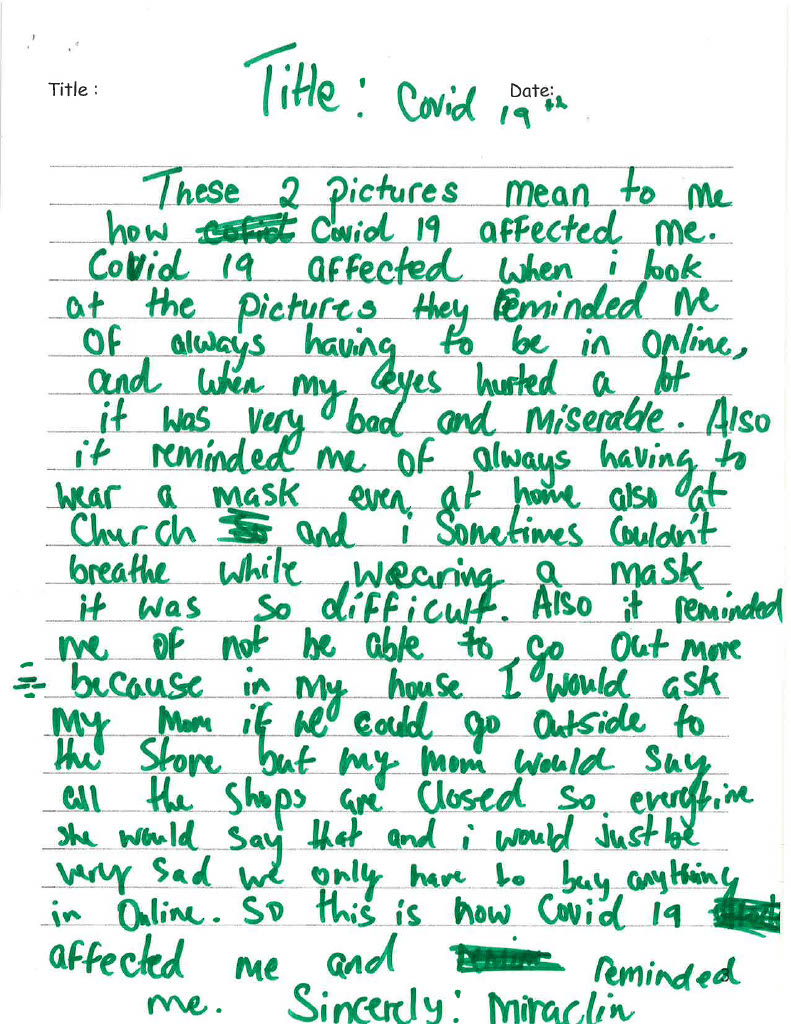 Title :
Title: Covid 19
Date:
These 2 pictures mean to me
how Covid 19 affected me.
Covid 19 affected when i look
at the pictures they reminded me
of always having to be in Online,
and when my eyes hurted a lot
it was very bad and miserable. Also
it reminded me of always having to
wear a mask even at home also at
Church and i Sometimes Couldn't
breathe while wearing a mask
it was so difficult. Also it reminded
me of not be able to go out more
because in my house I would ask
my mom if we could go outside to
the Store but my mom would say
all the shops are Closed so everytime
she would say that and i would just be
very sad we only have to buy anything
in Online. So this is how Covid 19
affected me and reminded
me. Sincerely: Miraclin